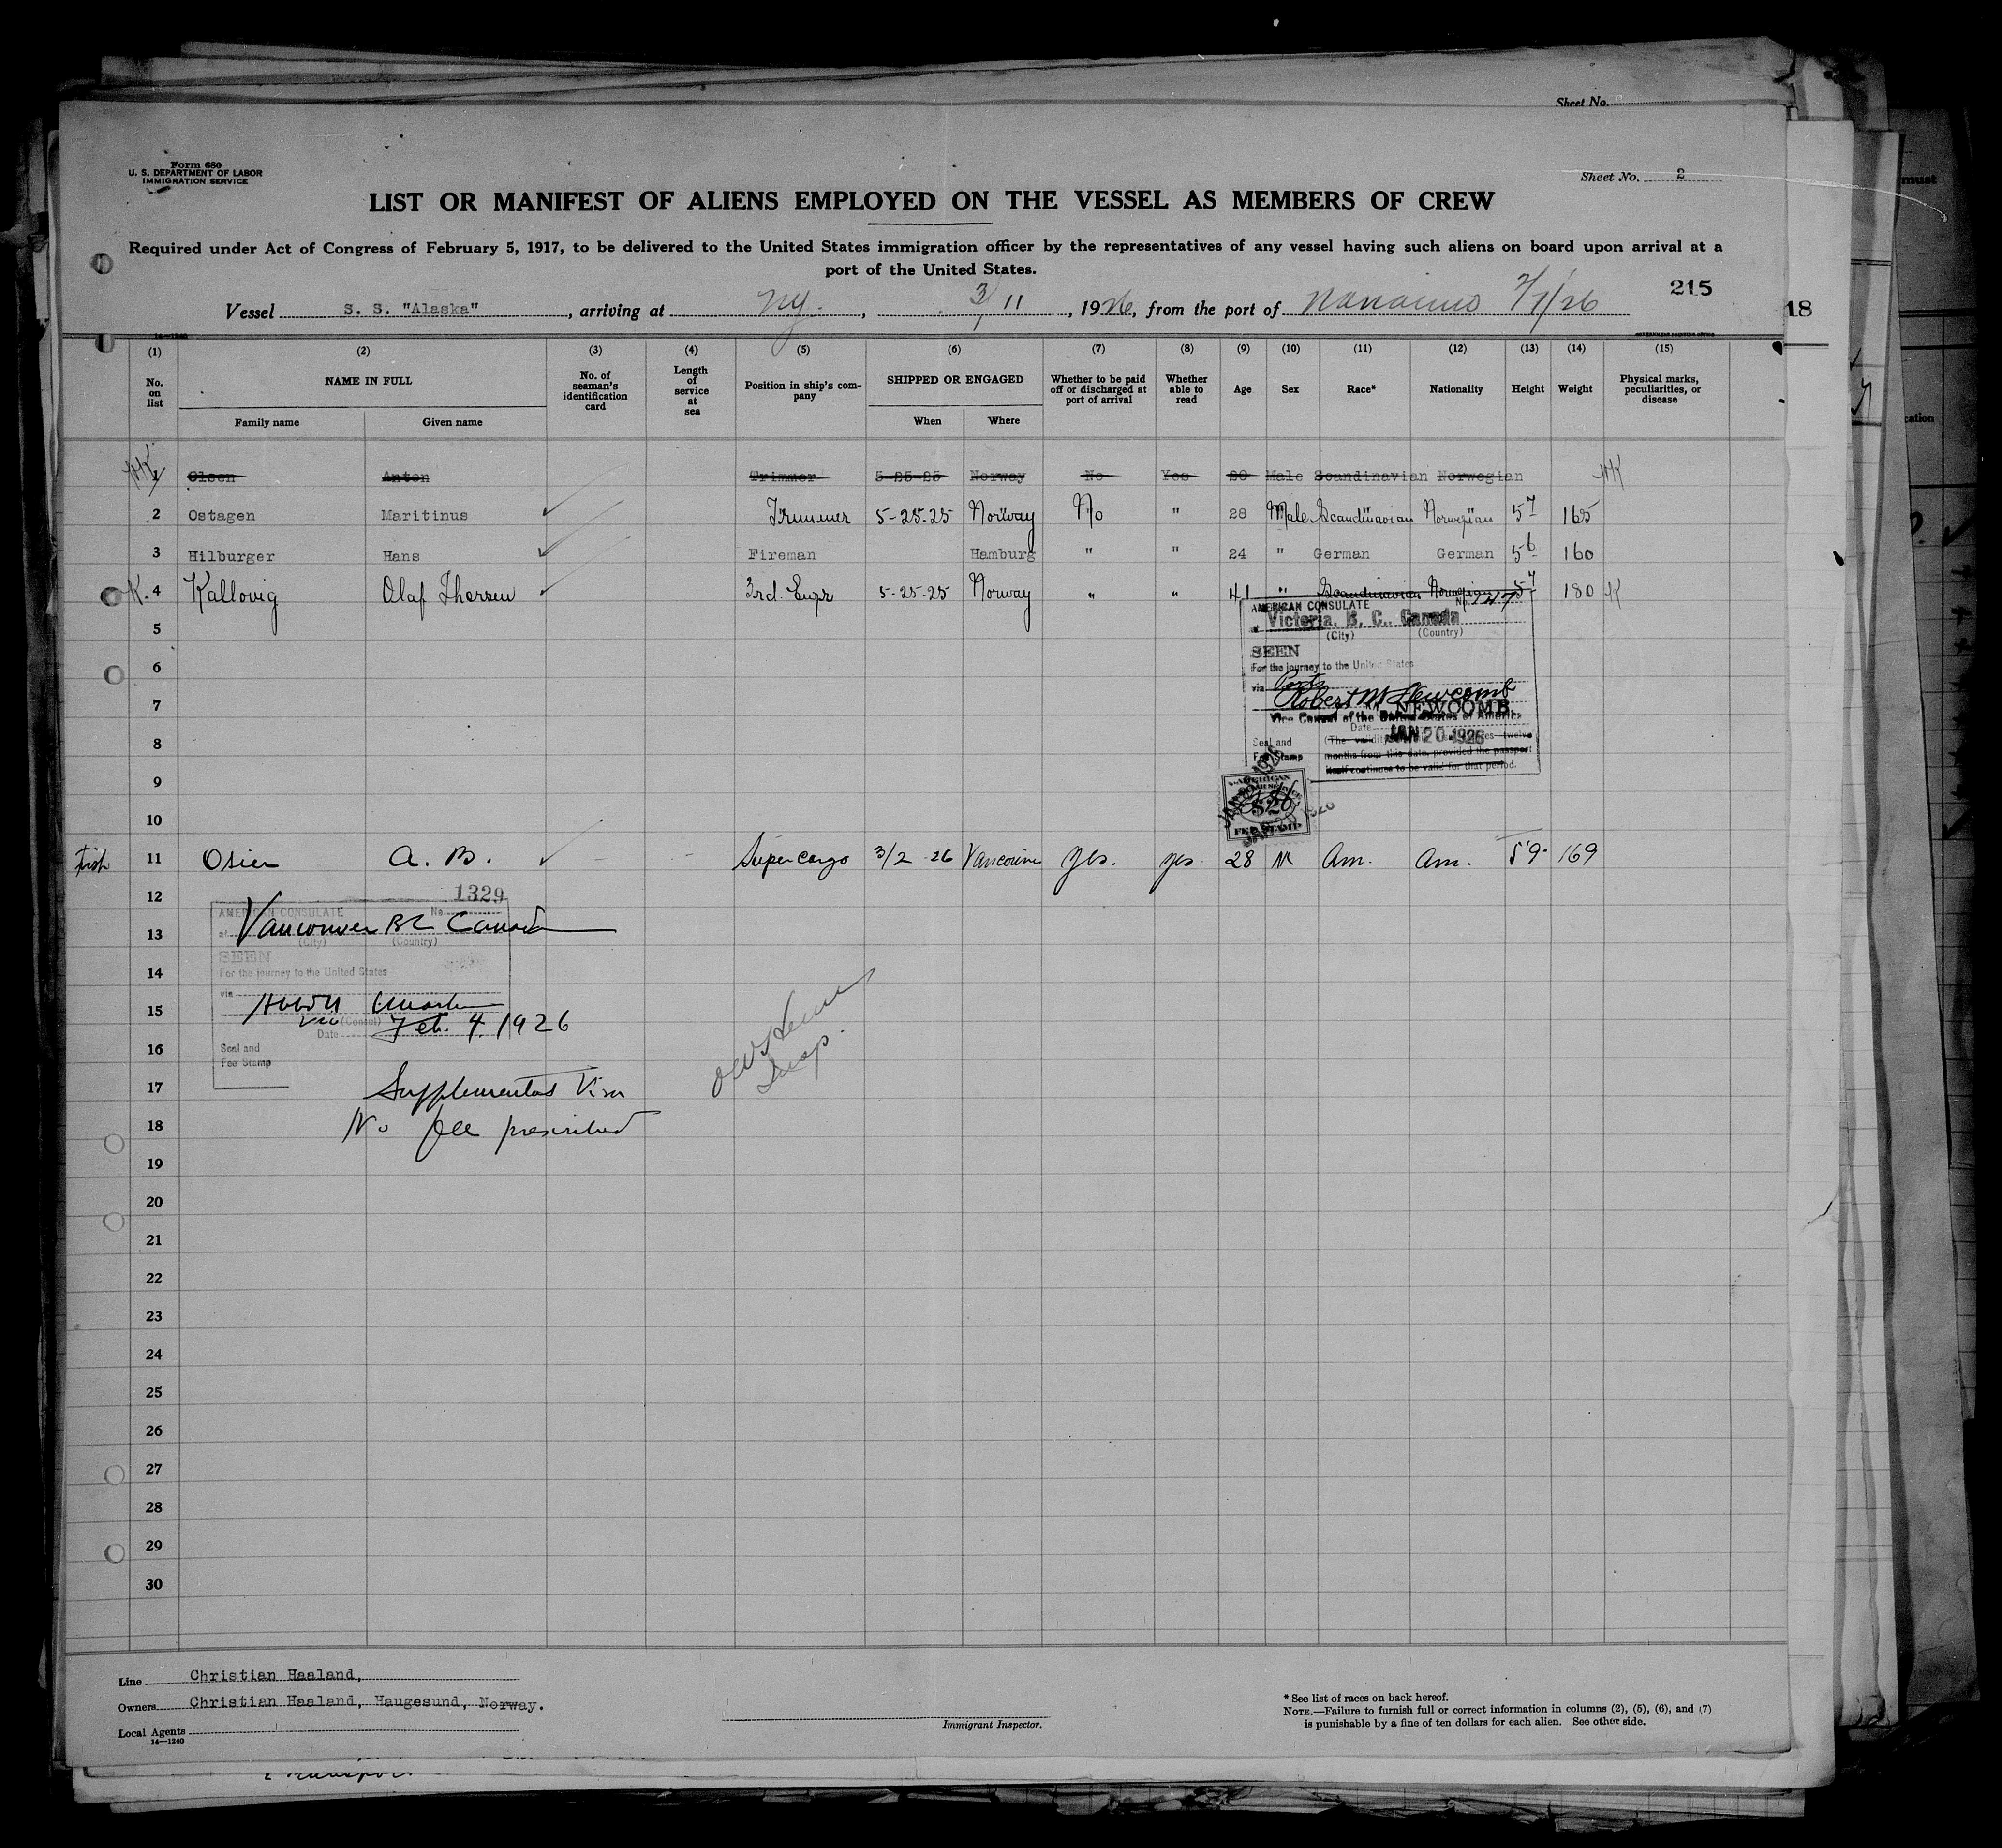 Sheet No.
Form 680
U. S. DEPARTMENT OF LABOR
IMMIGRATION SERVICE
Sheet No. 2
LIST OR MANIFEST OF ALIENS EMPLOYED ON THE VESSEL AS MEMBERS OF CREW
Required under Act of Congress of February 5, 1917, to be delivered to the United States immigration officer by the representatives of any vessel having such aliens on board upon arrival at a
port of the United States.
215
Vessel S. S. "Alaska", arriving at NY., 3/11, 1926, from the port of Nanaimo 2/7/26
18
(1) (2) (3) (4) (5) (6) (7) (8) (9) (10) (11) (12) (13) (14) (15)
No. on list NAME IN FULL No. of seaman's identification card Length of service at sea Position in ship's company SHIPPED OR ENGAGED Whether to be paid off or discharged at port of arrival Whether able to read Age Sex Race* Nationality Height Weight Physical marks, peculiarities, or disease
Family name Given name When Where
1 Olsen Anton Trimmer 5-25-25 Norway No Yes 20 Male Scandinavian Norwegian
2 Ostagen Maritinus Trimmer 5-25-25 Norway No " 28 Male Scandinavian Norwegian 5 7 165
3 Hilburger Hans Fireman Hamburg " " 24 " German German 5 6 160
K. 4 Kallovig Olaf Thorsen 3rd Engr 5-25-25 Norway " " 41 " Scandinavian Norwegian 5 7 180 K
5
6
7
8
9
10
AMERICAN CONSULATE No. 747
at Victoria, B. C., Canada
(City) (Country)
SEEN
For the journey to the United States
via Ports
Robert M Newcomb
NEWCOMB
Vice Consul of the United States of America
Date JAN 20 1926
(The validity twelve
months from this date, provided the passport
itself continues to be valid for that period.
Seal and
Fee Stamp
AMERICAN
$2
FEE STAMP
JAN 20 1926
11 Osier A. B. - - Supercargo 3/2-26 Vancouver Yes. yes 28 M Am. Am. 5'9" 169
12
13
14
15
16
17
18
1329
AMERICAN CONSULATE No.
at Vancouver BC Canada
(City) (Country)
SEEN
For the journey to the United States
via
Vice (Consul)
Date Feb. 4, 1926
Seal and
Fee Stamp
Supplemental Visa
No fee prescribed
Insp.
19
20
21
22
23
24
25
26
27
28
29
30
Line Christian Haaland,
Owners Christian Haaland, Haugesund, Norway.
Local Agents
14—1240
Immigrant Inspector.
* See list of races on back hereof.
NOTE.—Failure to furnish full or correct information in columns (2), (5), (6), and (7)
is punishable by a fine of ten dollars for each alien. See other side.